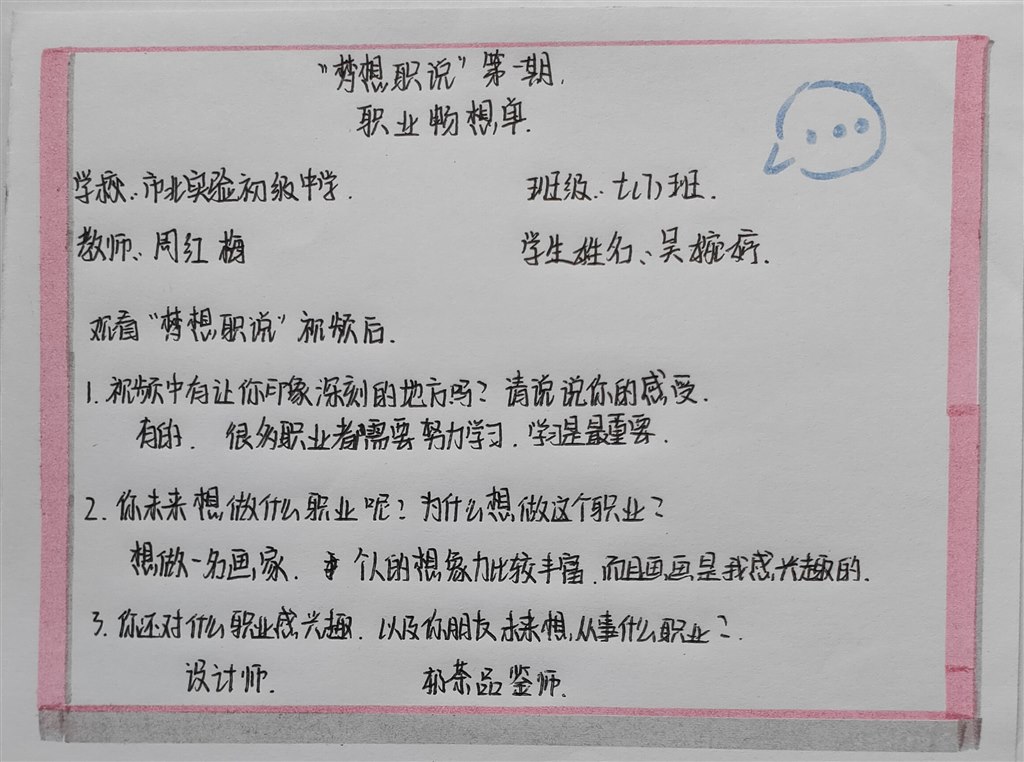 “梦想职说”第一期.
职业畅想单.
学校:市北实验初级中学.
班级:七(1)班.
教师:周红梅
学生姓名:吴婷.
观看“梦想职说”视频后.
1.视频中有让你印象深刻的地方吗?请说说你的感受.
有的.很多职业者都需要努力学习.学习是最重要.
2.你未来想做什么职业呢?为什么想做这个职业?
想做一名画家.个人的想象力比较丰富.而且画画是我感兴趣的.
3.你还对什么职业感兴趣.以及你朋友未来想从事什么职业?.
设计师.
奶茶品鉴师.